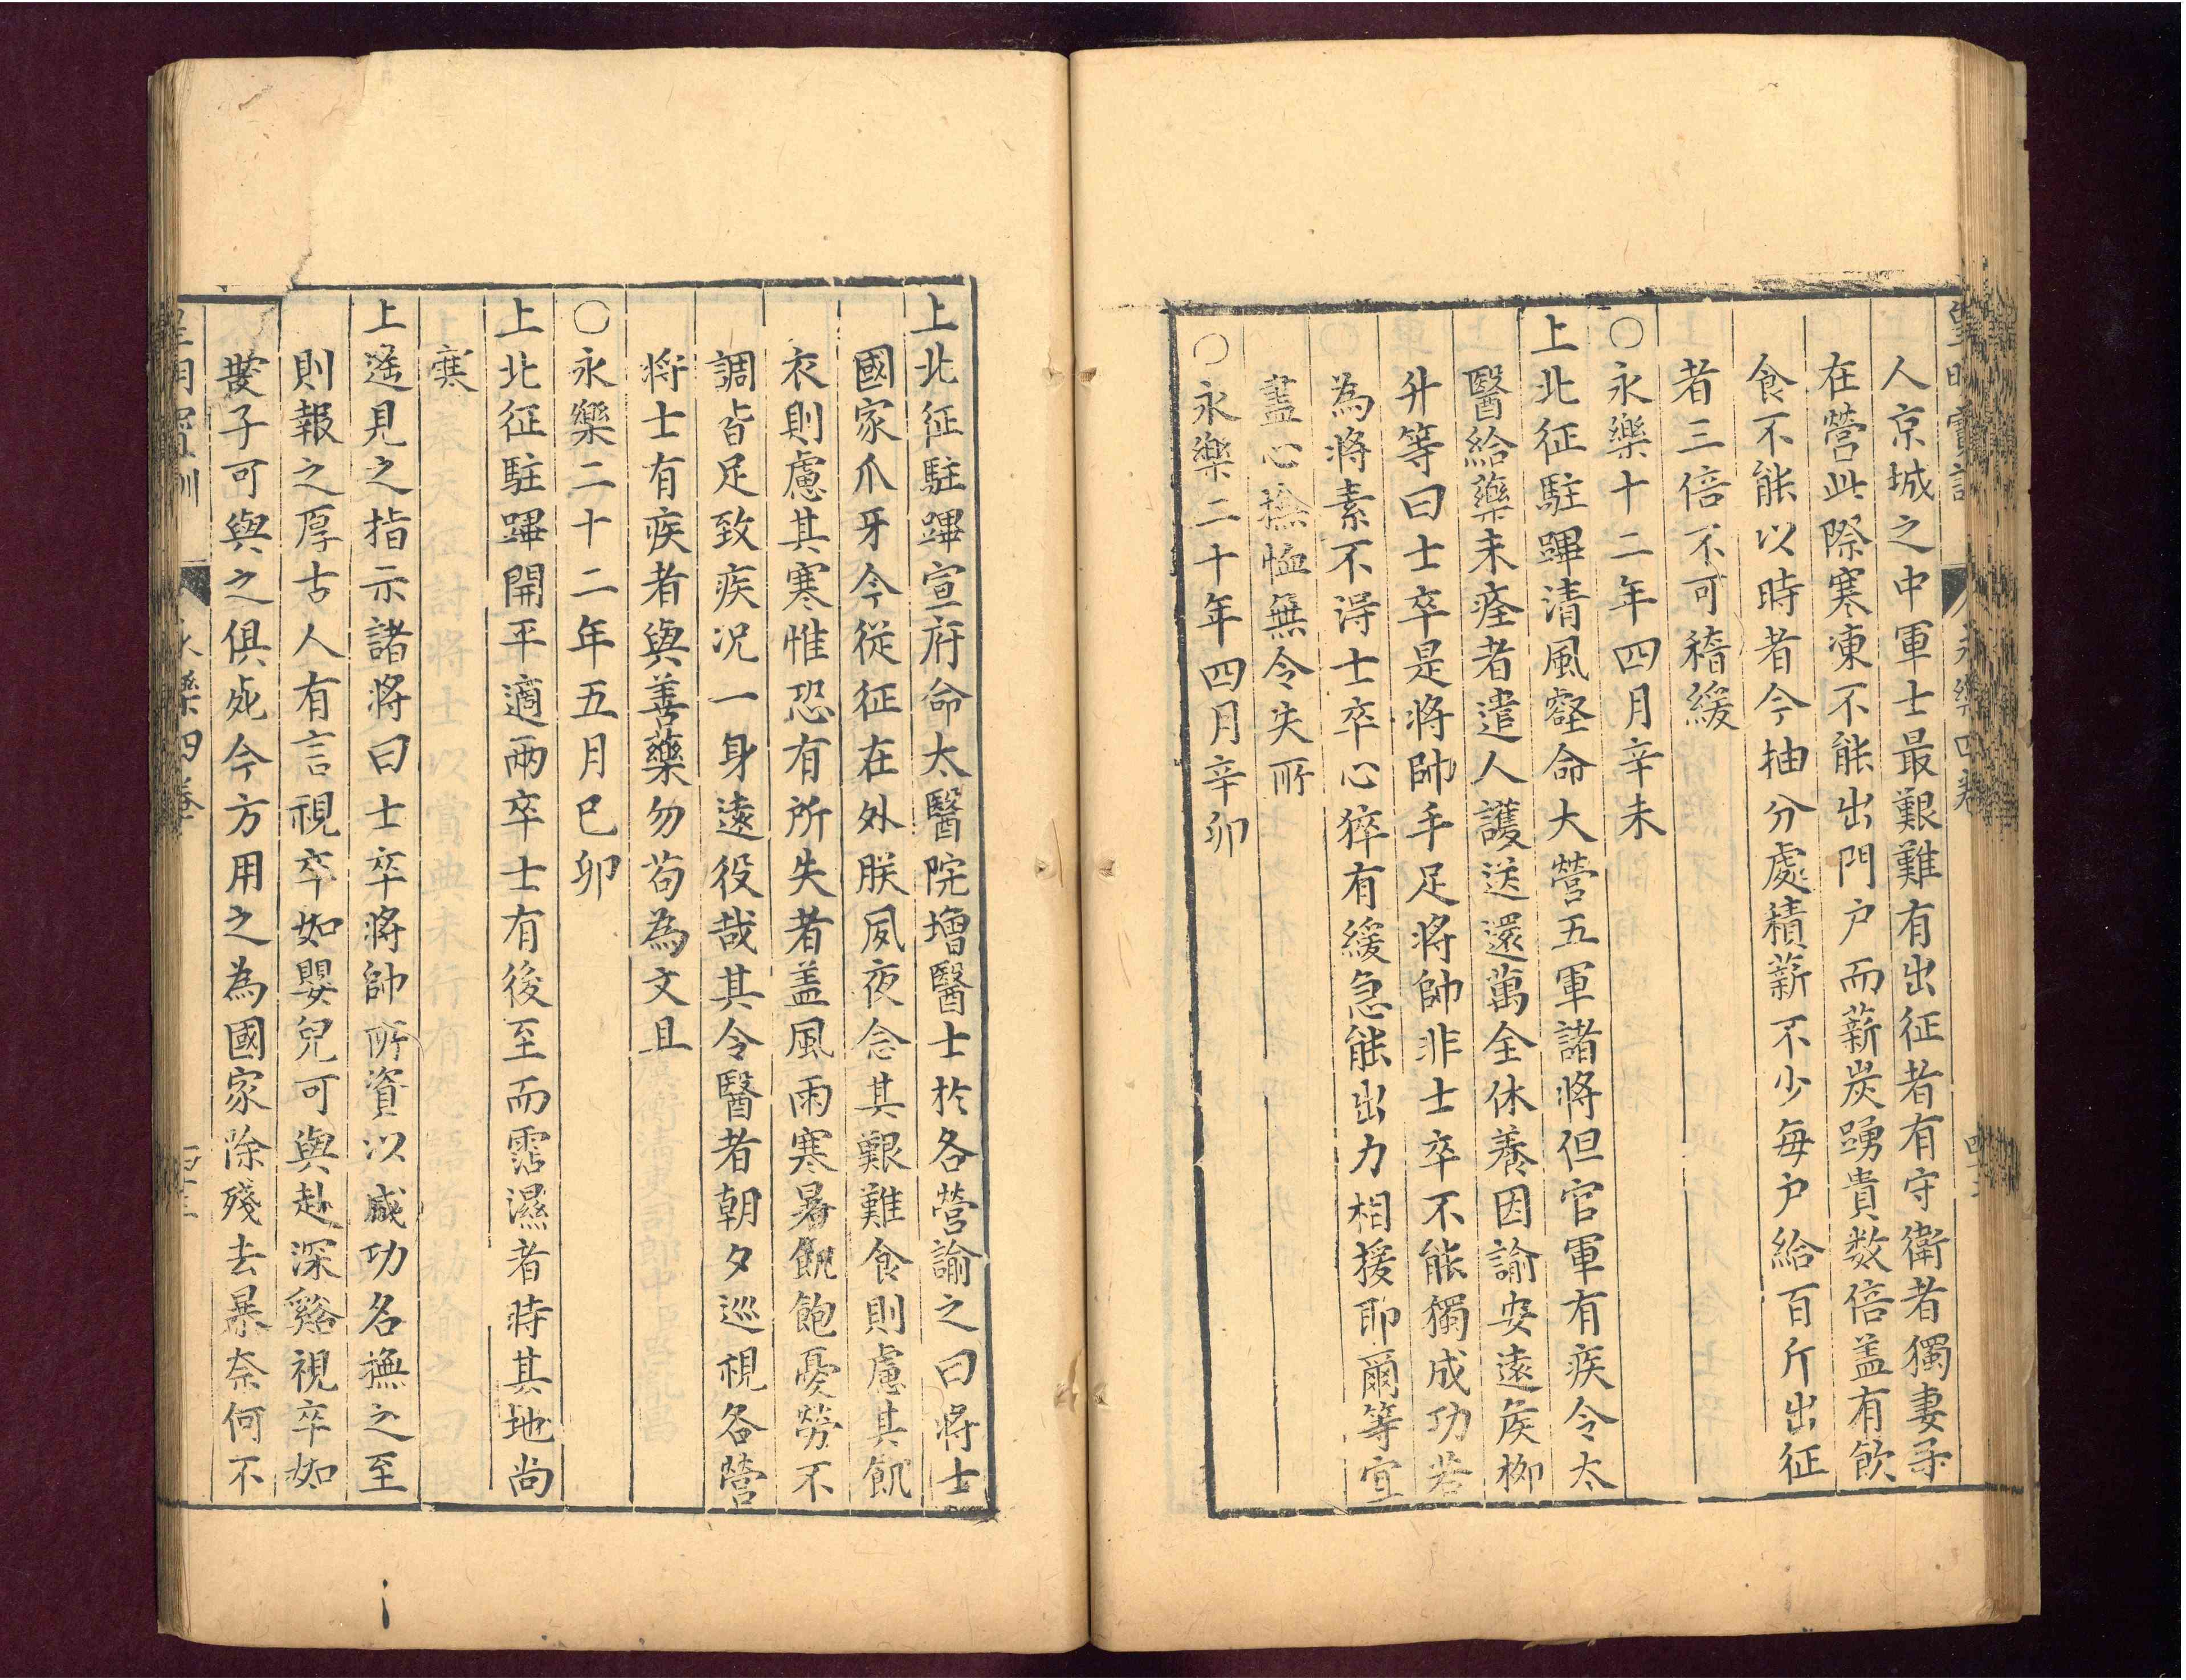 人京城之中軍士最艱難有出征者有守衛者獨妻子
在營此際寒凍不能出門户而薪炭踴貴数倍盖有飲
食不能以時者今抽分處積薪不少每户給百斤出征
者三倍不可稽緩
○永樂十二年四月辛未
上北征駐蹕清風壑命大營五軍諸將但官軍有疾令太
醫給藥未痊者遣人護送還萬全休養因諭安遠侯柳
升等曰士卒是將帥手足將帥非士卒不能獨成功若
為將素不得士卒心猝有緩急能出力相援耶爾等宜
盡心撫恤無令失所
○永樂二十年四月辛卯
上北征駐蹕宣府命太醫院增醫士於各營諭之曰將士
國家爪牙今從征在外朕夙夜念其艱難食則慮其飢
衣則慮其寒惟恐有所失者盖風雨寒暑飢飽憂勞不
調皆足致疾况一身遠役哉其令醫者朝夕巡視各營
將士有疾者與善藥勿苟為文且
○永樂二十二年五月己卯
上北征駐蹕開平適雨卒士有後至而霑濕者時其地尚
寒
上遙見之指示諸將曰士卒將帥所資以成功名撫之至
則報之厚古人有言視卒如嬰兒可與赴深谿視卒如
愛子可與之俱死今方用之為國家除殘去暴奈何不
皇明寶訓 永樂四卷